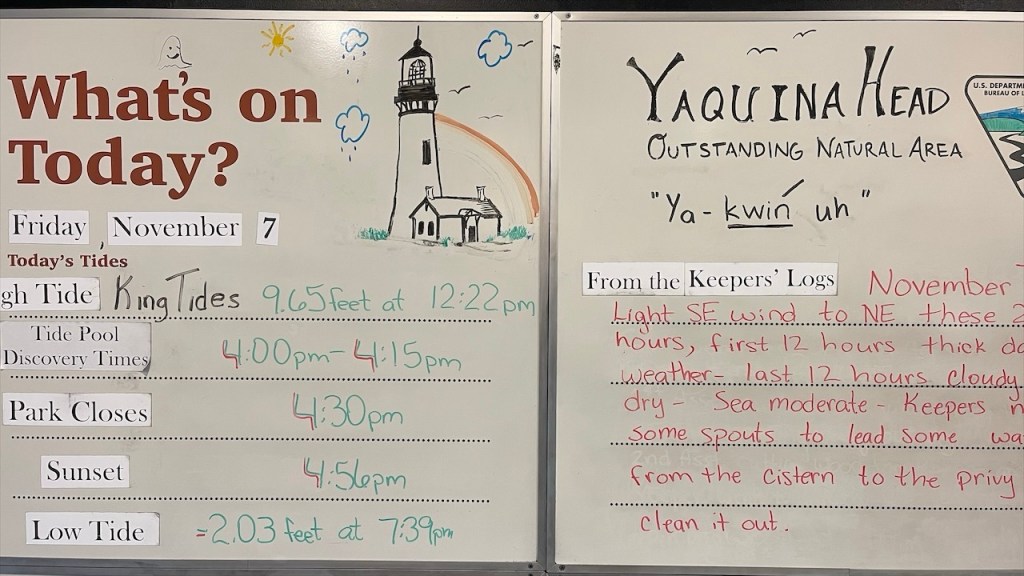 What's on
Today?
Friday, November 7
Today's Tides
gh Tide King Tides 9.65 feet at 12:22pm
Tide Pool
Discovery Times 4:00pm-4:15pm
Park Closes 4:30pm
Sunset 4:56pm
Low Tide =2.03 feet at 7:39pm
YAQUINA HEAD
OUTSTANDING NATURAL AREA
"Ya-kwin´ uh"
U.S. DEPARTM
BUREAU OF L
From the Keepers' Logs November
Light SE wind to NE these 2
hours, first 12 hours thick
weather- last 12 hours cloudy
dry- Sea moderate- Keepers
some spouts to lead some wa
from the cistern to the privy
clean it out.